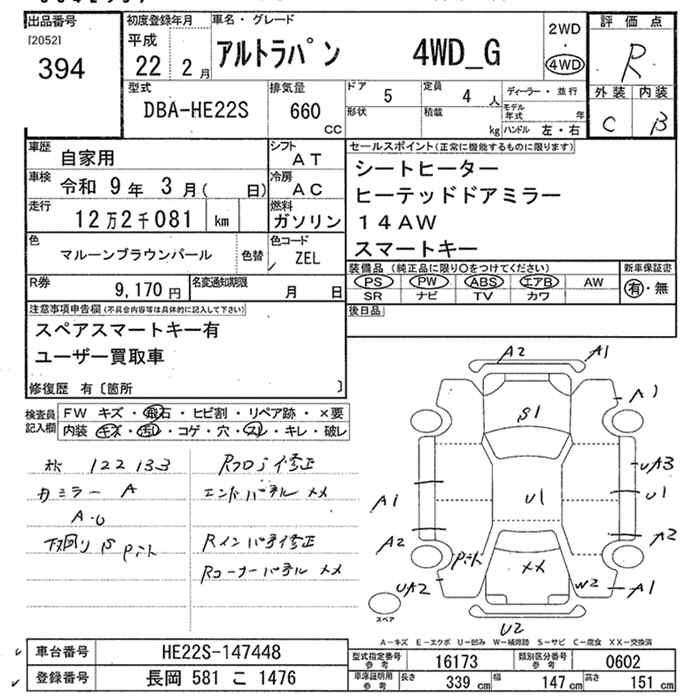 出品番号
[2052]
394
初度登録年月
平成
22 2月
車名・グレード
アルトラパン 4WD_G
2WD
・
4WD
評価点
R
外装 内装
C B
型式
DBA-HE22S
排気量
660
CC
ドア
5
定員
4 人
形状
積載
kg
ディーラー・並行
モデル年式 年
ハンドル 左・右
車歴
自家用
シフト
AT
車検
令和 9年 3月( 日)
冷房
AC
走行
12万2千081 km
燃料
ガソリン
色
マルーンブラウンパール
色替
色コード
ZEL
R券
9,170円
名変通知期限
月 日
セールスポイント(正常に機能するものに限ります)
シートヒーター
ヒーテッドドアミラー
14AW
スマートキー
装備品(純正品に限り○をつけてください)
PS PW ABS エアB AW
SR ナビ TV カワ
新車保証書
有・無
後日品
注意事項申告欄(不具合内容等は具体的に記入して下さい)
スペアスマートキー有
ユーザー買取車
修復歴 有〔箇所 〕
検査員記入欄
FW キズ・飛石・ヒビ割・リペア跡・×要
内装 キズ・汚レ・コゲ・穴・スレ・キレ・破レ
122133
カミラー A
A-U
下回りS Pint
Rフロア修正
エンドパネル ××
Rインパネ修正
Rコーナーパネル ××
A2
A1
A1
S1
UA3
U1
U1
A1
A2
A2
××
UA2
W2
A1
U2
スペア
A-キズ E-エクボ U-凹み W-補修跡 S-サビ C-腐食 XX-交換済
車台番号
HE22S-147448
登録番号
長岡 581 こ 1476
型式指定番号
参考
16173
類別区分番号
参考
0602
車庫証明用
参考
長さ
339 cm
幅
147 cm
高さ
151 cm